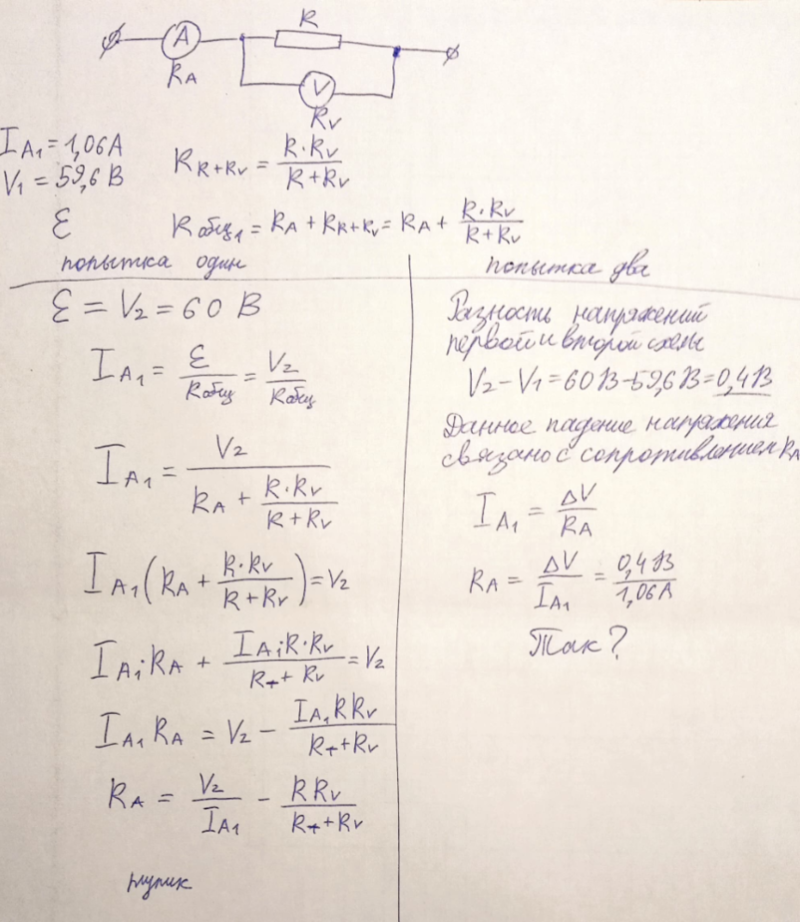 A
R
R_A
V
R_V
I_A1 = 1,06A
V_1 = 59,6 В
ε
R_R+RV = R·R_V / R+R_V
R общ1 = R_A + R_R+RV = R_A + R·R_V / R+R_V
попытка один
ε = V_2 = 60 В
I_A1 = ε / R общ = V_2 / R общ
I_A1 = V_2 / (R_A + R·R_V / R+R_V)
I_A1 (R_A + R·R_V / R+R_V) = V_2
I_A1 R_A + I_A1 R·R_V / R+R_V = V_2
I_A1 R_A = V_2 - I_A1 R R_V / R+R_V
R_A = V_2 / I_A1 - R R_V / R+R_V
тупик
попытка два
Разность напряжений
первой и второй схемы
V_2 - V_1 = 60В - 59,6В = 0,4В
Данное падение напряжения
связано с сопротивлением R_A
I_A1 = ΔV / R_A
R_A = ΔV / I_A1 = 0,4В / 1,06А
Так?